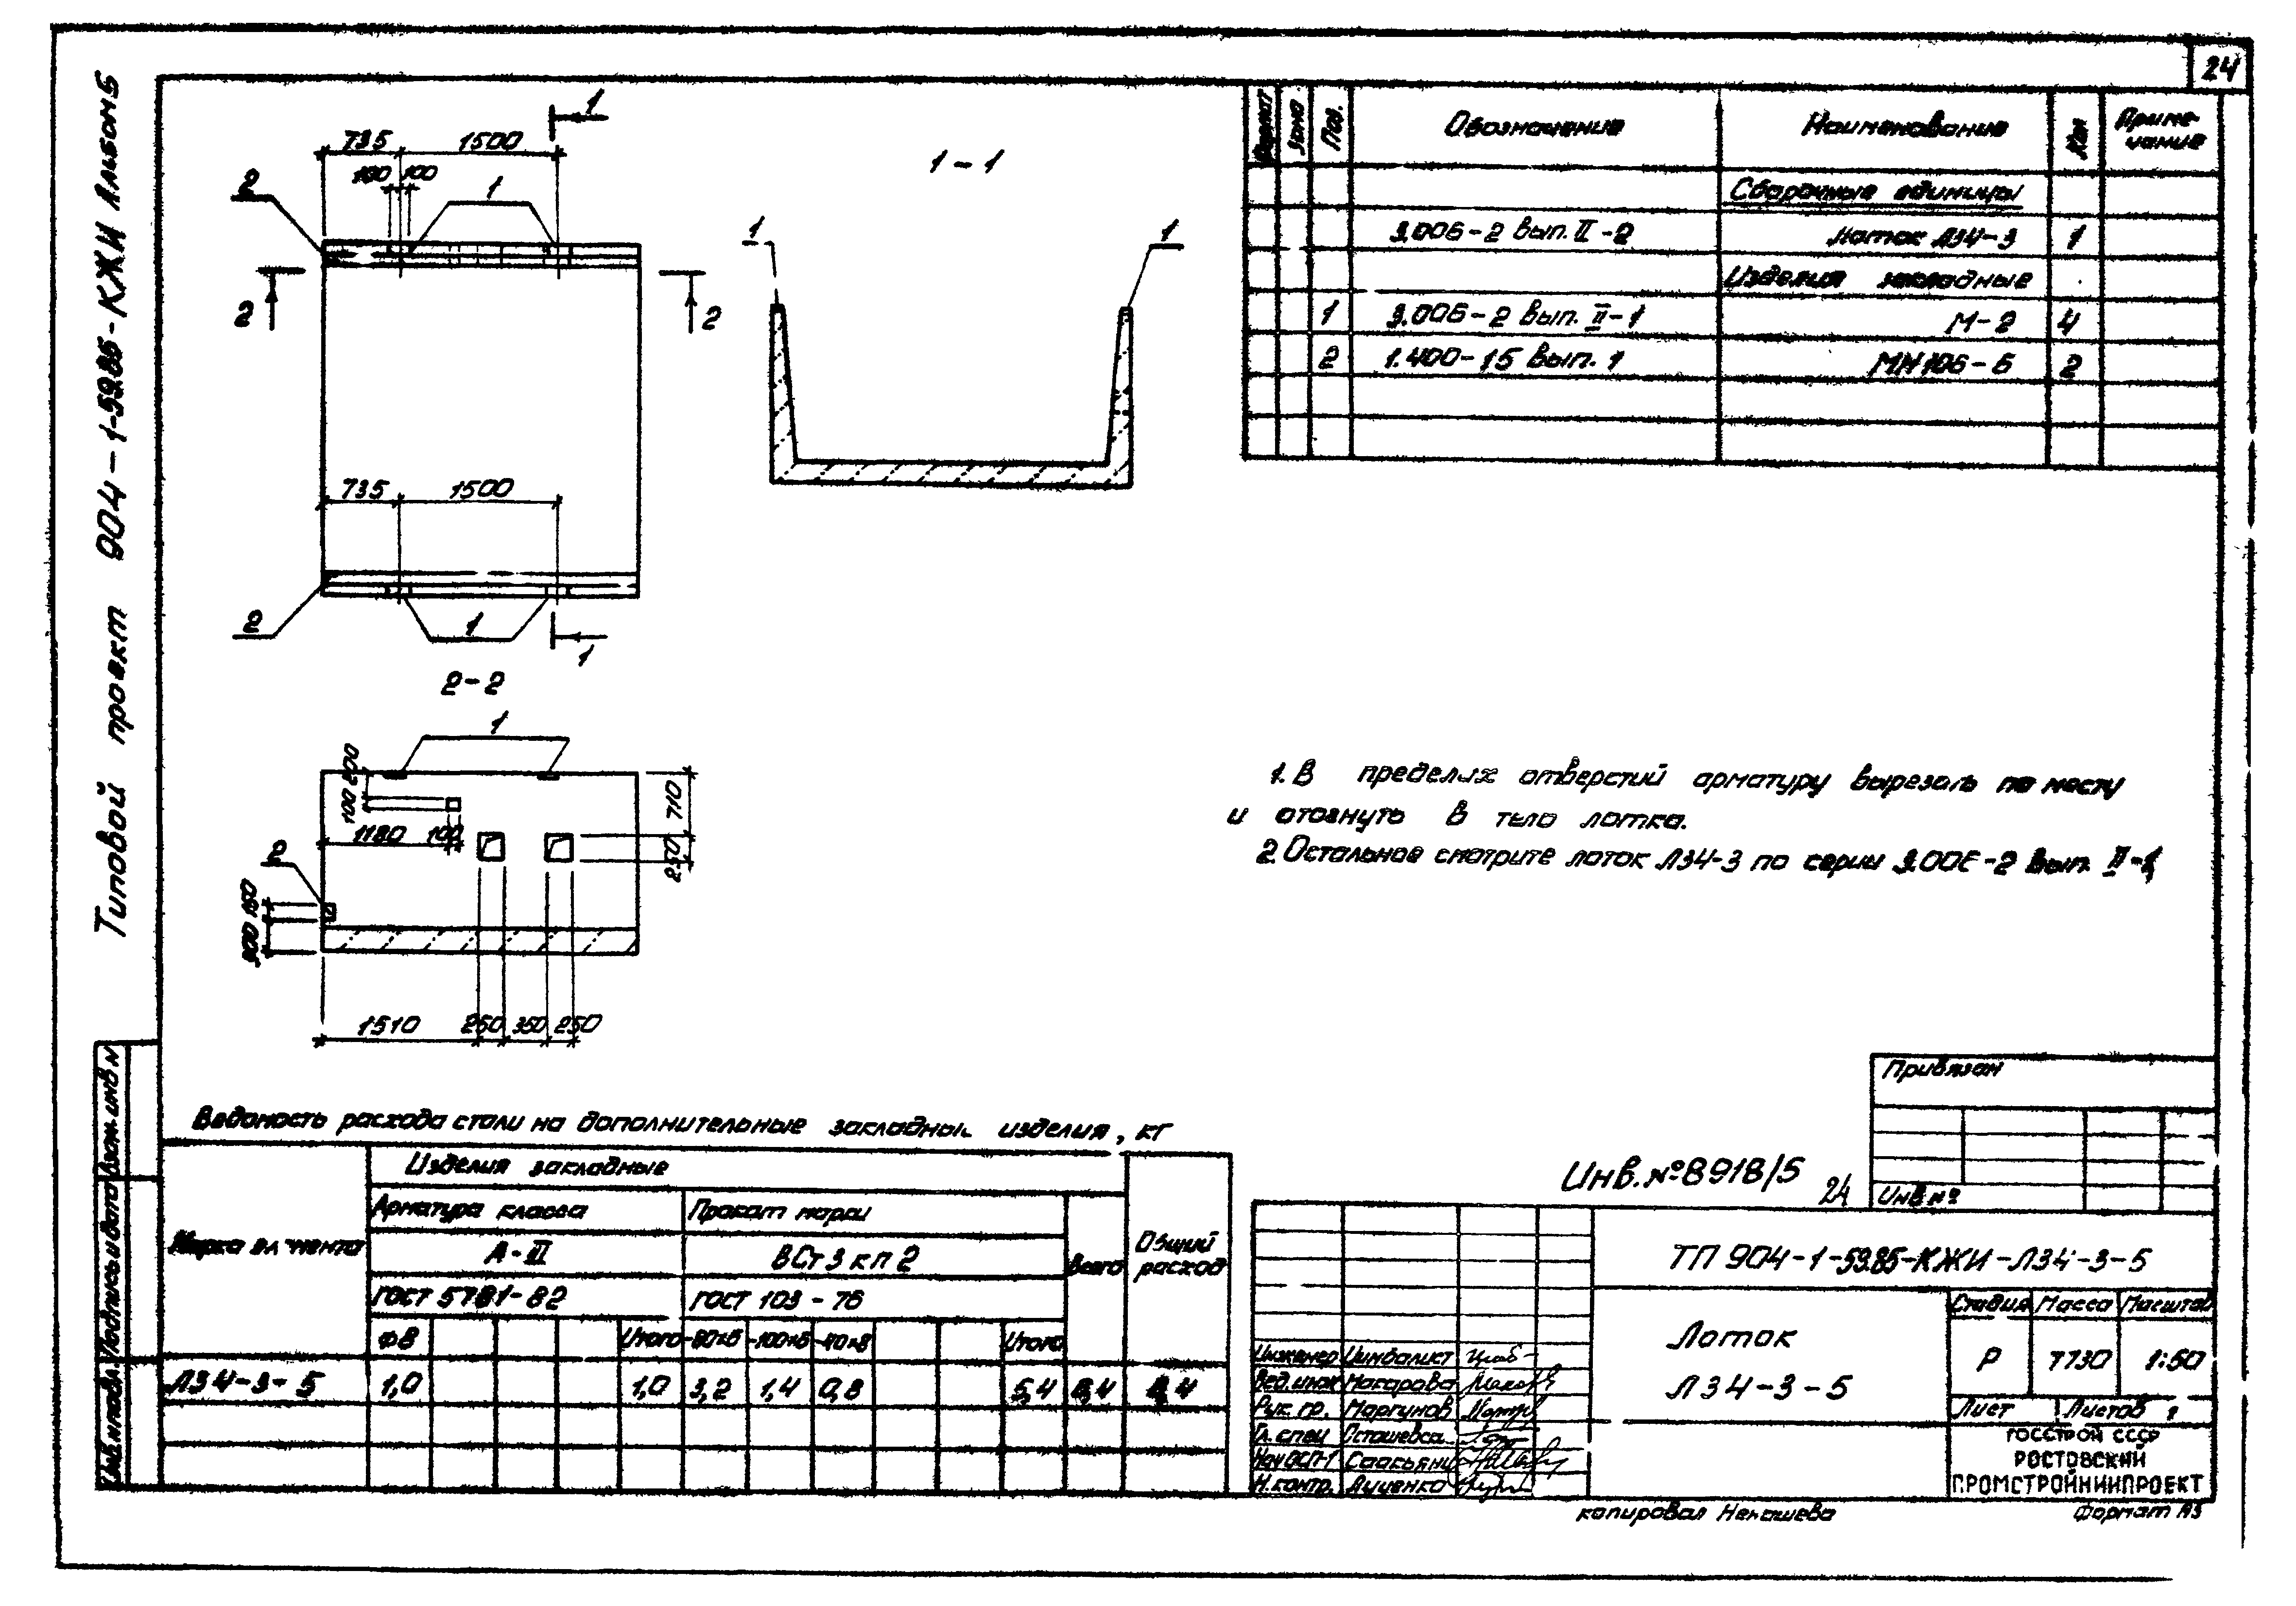 24
Типовой проект 904-1-59.85-КЖИ Альбом 5
1
735 1500
100 100
2
1
2 2
735 1500
2
1
1
1-1
1 1
2-2
1
200
100
1180 100
710
250
2
150
300
1510 250 350 250
Формат Зона Поз. Обозначение Наименование Кол Приме-
чание
Сборочные единицы
3.006-2 вып. II-2 Лоток Л34-3 1
Изделия закладные
1 3.006-2 вып. II-1 М-2 4
2 1.400-15 вып. 1 МН106-6 2
1. В пределах отверстий арматуру вырезать по месту
и отогнуть в тело лотка.
2. Остальное смотрите лоток Л34-3 по серии 3.006-2 Вып. II-1
Ведомость расхода стали на дополнительные закладные изделия, кг
Марка элемента
Изделия закладные
Общий
расход
Арматура класса Прокат марки
Всего
А-III ВСт3кп2
ГОСТ 5781-82 ГОСТ 103-76
ф8 Итого -80х6 -100х6 -40х8 Итого
Л34-3-5 1,0 1,0 3,2 1,4 0,8 5,4 6,4 6,4
Взам. инв N
Подпись и дата
Инв. N подл.
Привязан
Инв №
Инв. № 8918/5 24
ТП 904-1-59.85-КЖИ-Л34-3-5
Лоток
Л34-3-5
Стадия Масса Масштаб
Р 7730 1:50
Лист Листов 1
ГОССТРОЙ СССР
РОСТОВСКИЙ
ПРОМСТРОЙНИИПРОЕКТ
Инженер Цимбалист
Вед. инж Макарова
Рук. гр. Моргунов
Гл. спец Осташевса
Нач ОСП-1 Саакьянц
Н. контр. Луценко
копировал Ненашева
Формат А3